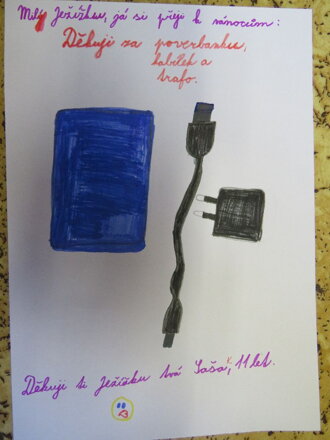 Milý Ježíšku, já si přeji k vánocům:
Děkuji za poverbanku,
kabílek a
trafo.
Děkuji ti Ježíšku tvá Saša K, 11 let.